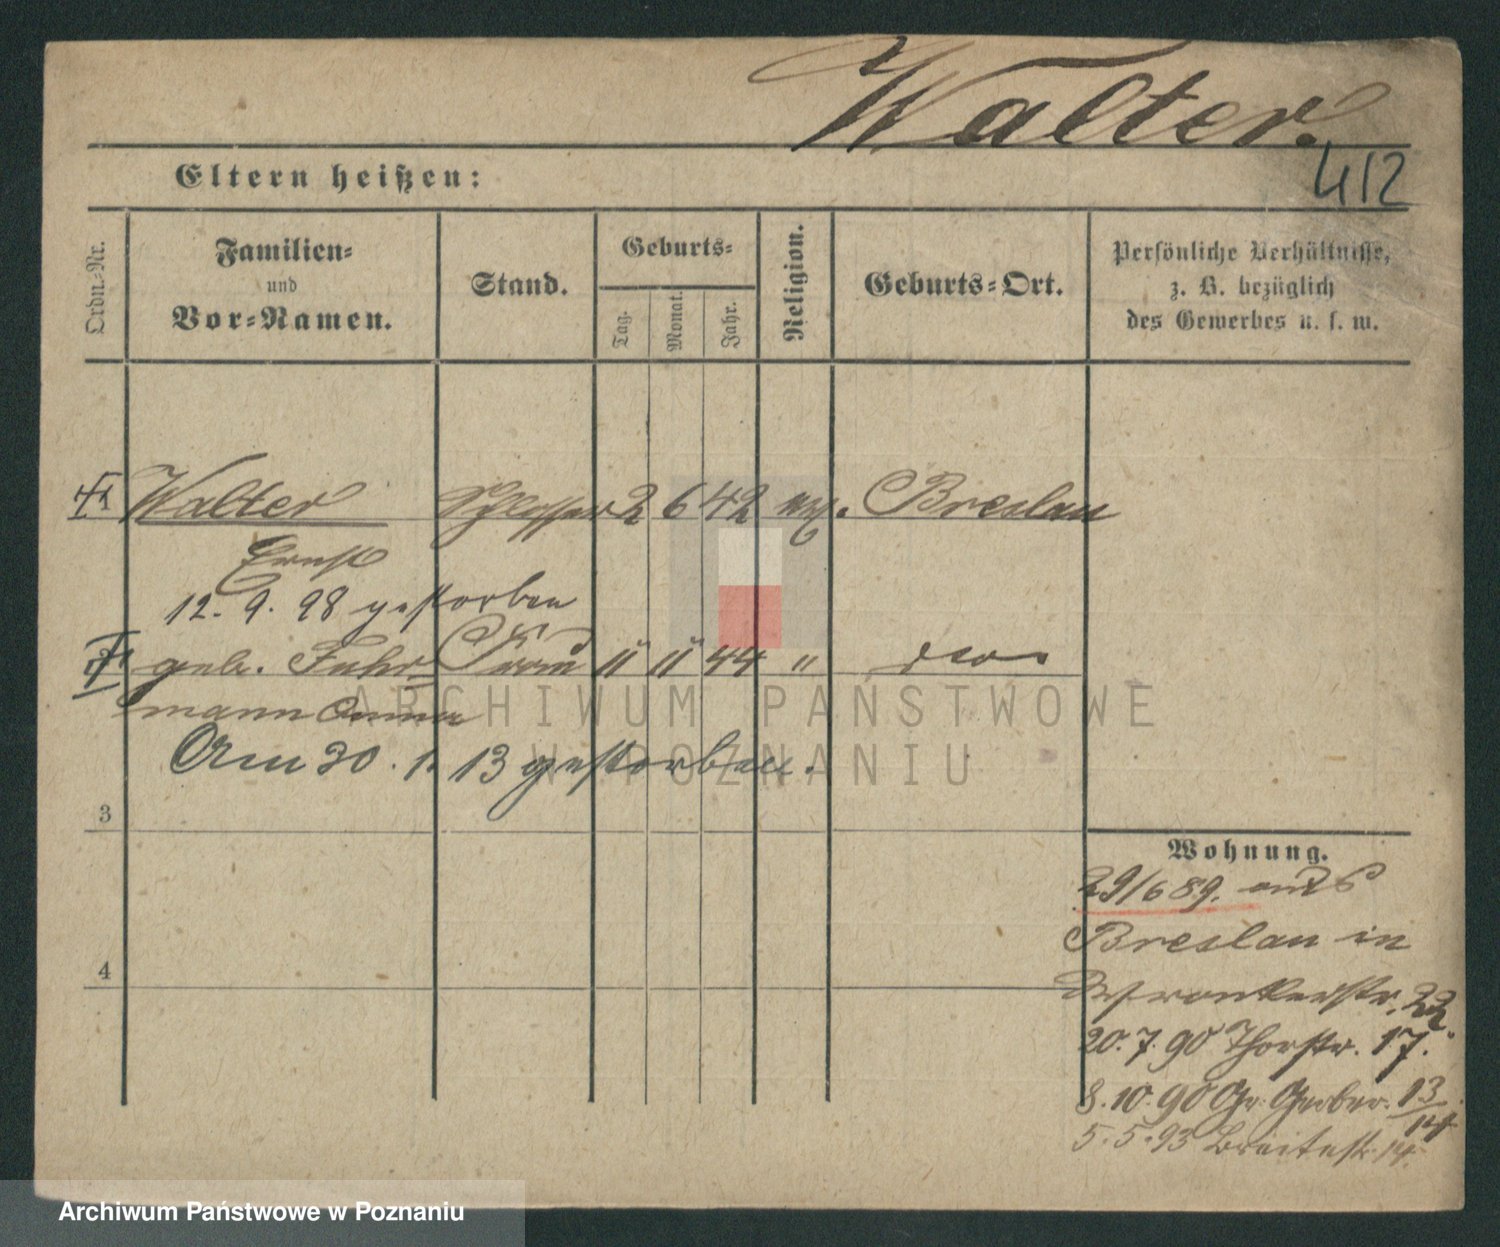 Walter.
412
Eltern heißen:
Ordn.-Nr.
Familien-
und
Vor-Namen.
Stand.
Geburts-
Tag.
Monat.
Jahr.
Religion.
Geburts-Ort.
Persönliche Verhältnisse,
z. B. bezüglich
des Gewerbes u. s. w.
1 Walter Schlosser 2 6 42 Breslau
Ernst
12. 9. 98 gestorben
geb. Fuhr- Frau 11 11 44 " dto
mann Anna
Am 30. 1. 13 gestorben.
3
4
Wohnung.
29/6 89. aus
Breslau in
Wronkerstr. 22
20. 7. 90 Thorstr. 17.
8. 10. 90 Gr. Gerber. 13/14
5. 5. 93 Breitestr. 14.
ARCHIWUM PAŃSTWOWE
W POZNANIU
Archiwum Państwowe w Poznaniu